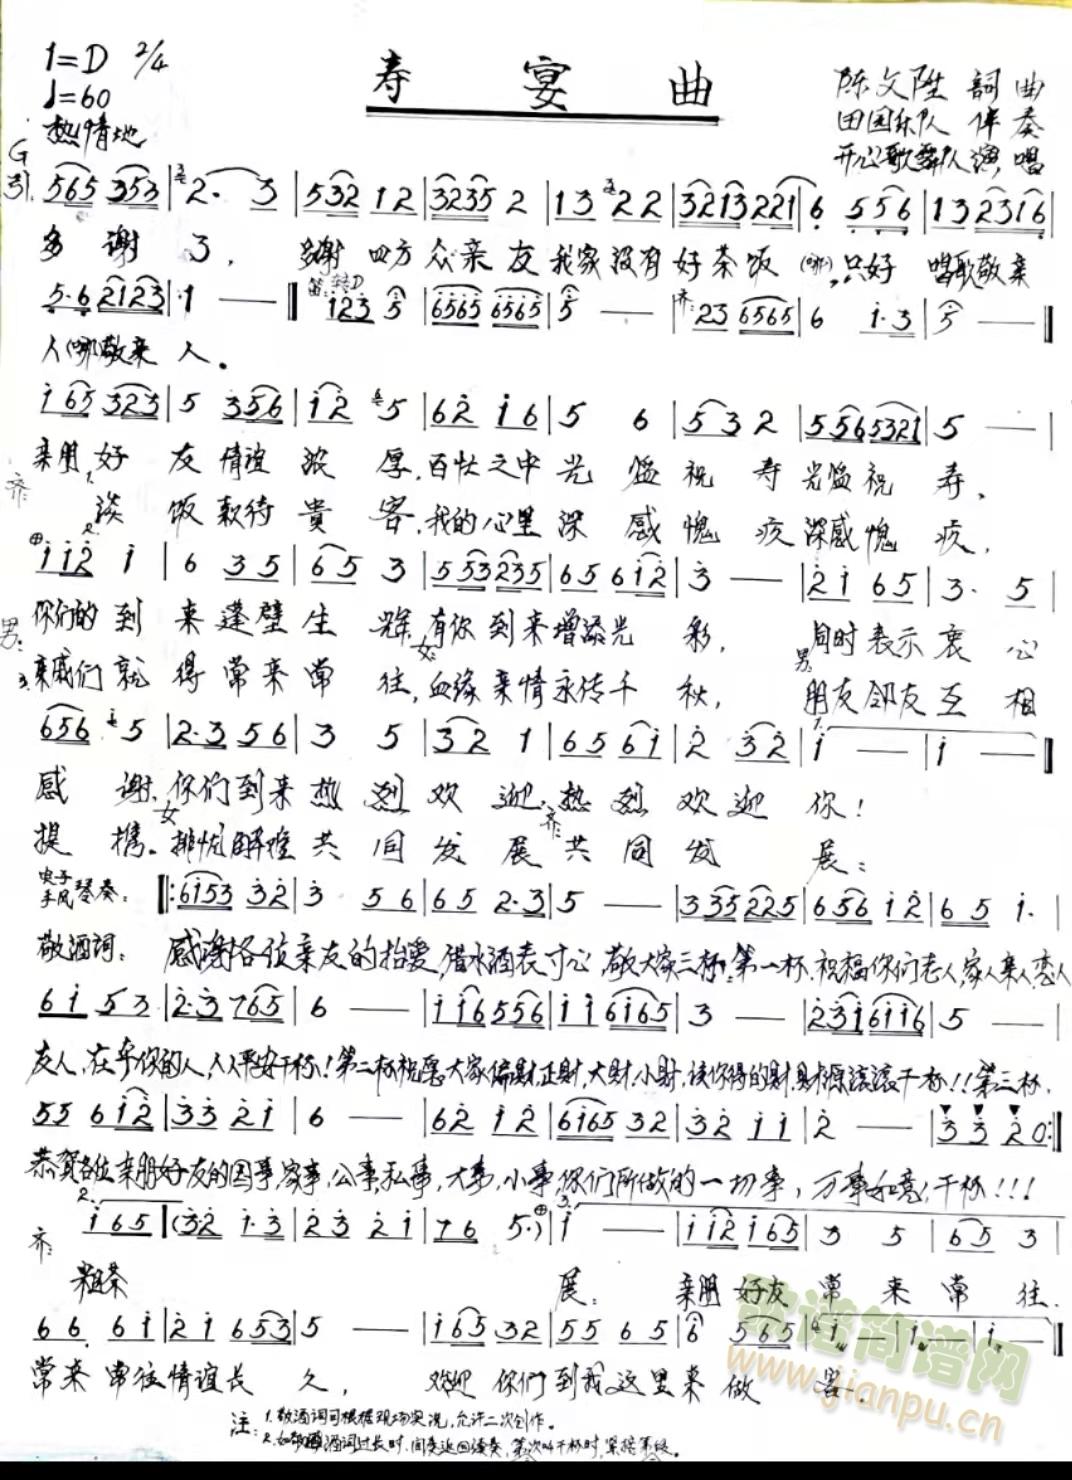 1=D 2/4
寿宴曲
♩=60
热情地
陈文陞 詞曲
田园乐队 伴奏
开心歌舞队 演唱
G
引.
565 353 | 2· 3 | 532 12 | 3235 2 | 13 22 | 3213221 | 6 556 | 13 2316 |
多谢了，多谢四方众亲友我家没有好茶饭(哪)，只好唱歌敬亲
5·6 2123 | 1 — ‖ 笛: 转D 123 5 | 6565 6565 | 5 — | 齐: 23 6565 | 6 1·3 | 5 — ‖
人(哪)敬亲人。
165 323 | 5 356 | 12 5 | 62 16 | 5 6 | 53 2 | 5565321 | 5 — |
亲朋好友情谊浓厚，百忙之中光临祝寿光临祝寿，
齐:
淡饭款待貴客，我的心里深感愧疚深感愧疚，
112 1 | 6 35 | 65 3 | 553235 | 65 612 | 3 — | 21 65 | 3· 5 |
男:
你们的到来蓬壁生辉，有你到来增添光彩，同时表示衷心
3.亲戚们就得常来常往，女:血缘亲情永传千秋，男:朋友邻友互相
656 5 | 2·3 56 | 3 5 | 32 1 | 65 61 | 2 32 | 1 — | 1 — ‖
感谢，你们到来热烈欢迎，热烈欢迎你！
提携。女排忧解难共同发展齐:共同发展：
电子
手风琴奏：
‖: 6153 32 | 3 56 | 65 2·3 | 5 — | 335225 | 656 12 | 65 1· |
敬酒词： 感谢各位亲友的抬爱，借水酒表寸心，敬大家三杯：第一杯，祝福你们老人，家人亲人恋人
61 53 | 2·3 765 | 6 — | 116556 | 11 6165 | 3 — | 2316116 | 5 — |
友人，在乎你的人，人人平安干杯！第二杯祝愿大家偏财，正财，大财，小财，该你得的财，财源滚滚干杯！！第三杯，
55 612 | 33 21 | 6 — | 62 12 | 6165 32 | 32 11 | 2 — | 3 3 20 :‖
恭贺各位亲朋好友的国事，家事，公事，私事，大事，小事，你们所做的一切事，万事如意，干杯！！！
2.
165 ‖ (32 1·3 | 23 21 | 76 5·) | 3. 1 — | 112 165 | 3 5 | 65 3 |
齐:
粗茶 展： 亲朋好友常来常往，
66 61 | 21 653 | 5 — | 165 32 | 55 65 | 6 565 | 1 — | 1 — | 1 — ‖
常来常往情谊长久， 欢迎你们到我这里来做客。
歌谱简谱网
www.jianpu.cn
注：1.敬酒词可根据现场实况，允许二次创作。
2.如敬酒词过长时，间奏返回演奏，第三次叫干杯时，紧接第段。